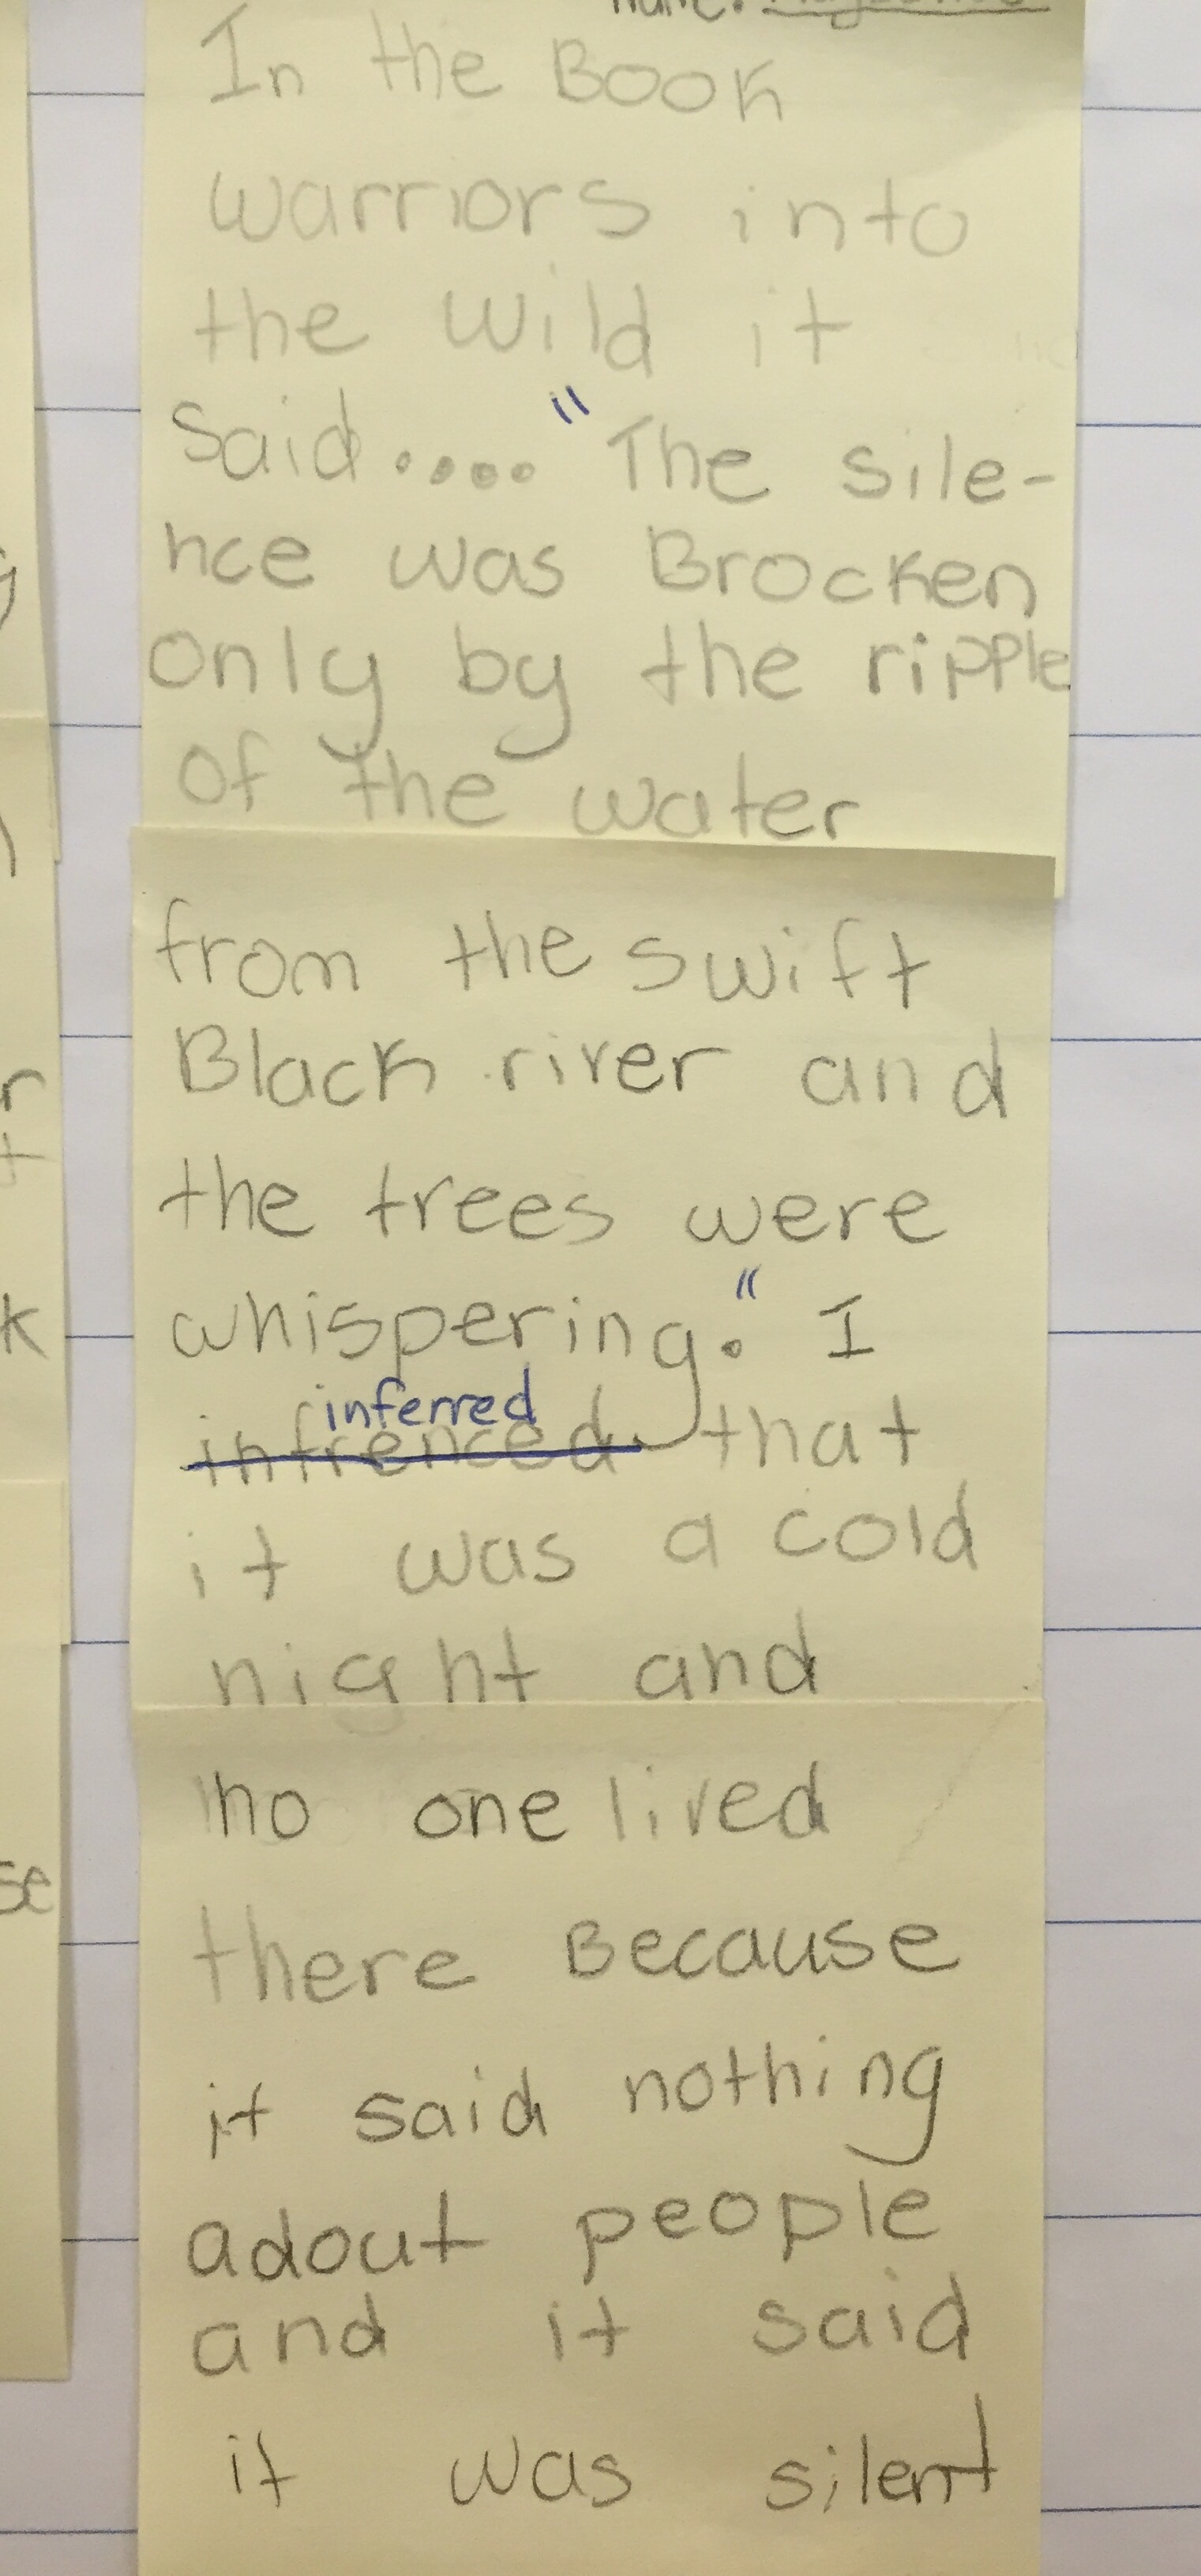 Name:
In the Book
warriors into
the wild it
said.... "The sile-
nce was Brocken
only by the ripple
of the water
from the swift
Black river and
the trees were
whispering." I
inferred
infrenced that
it was a cold
night and
no one lived
there Because
it said nothing
adout people
and it said
it was silent
r
t
k
se